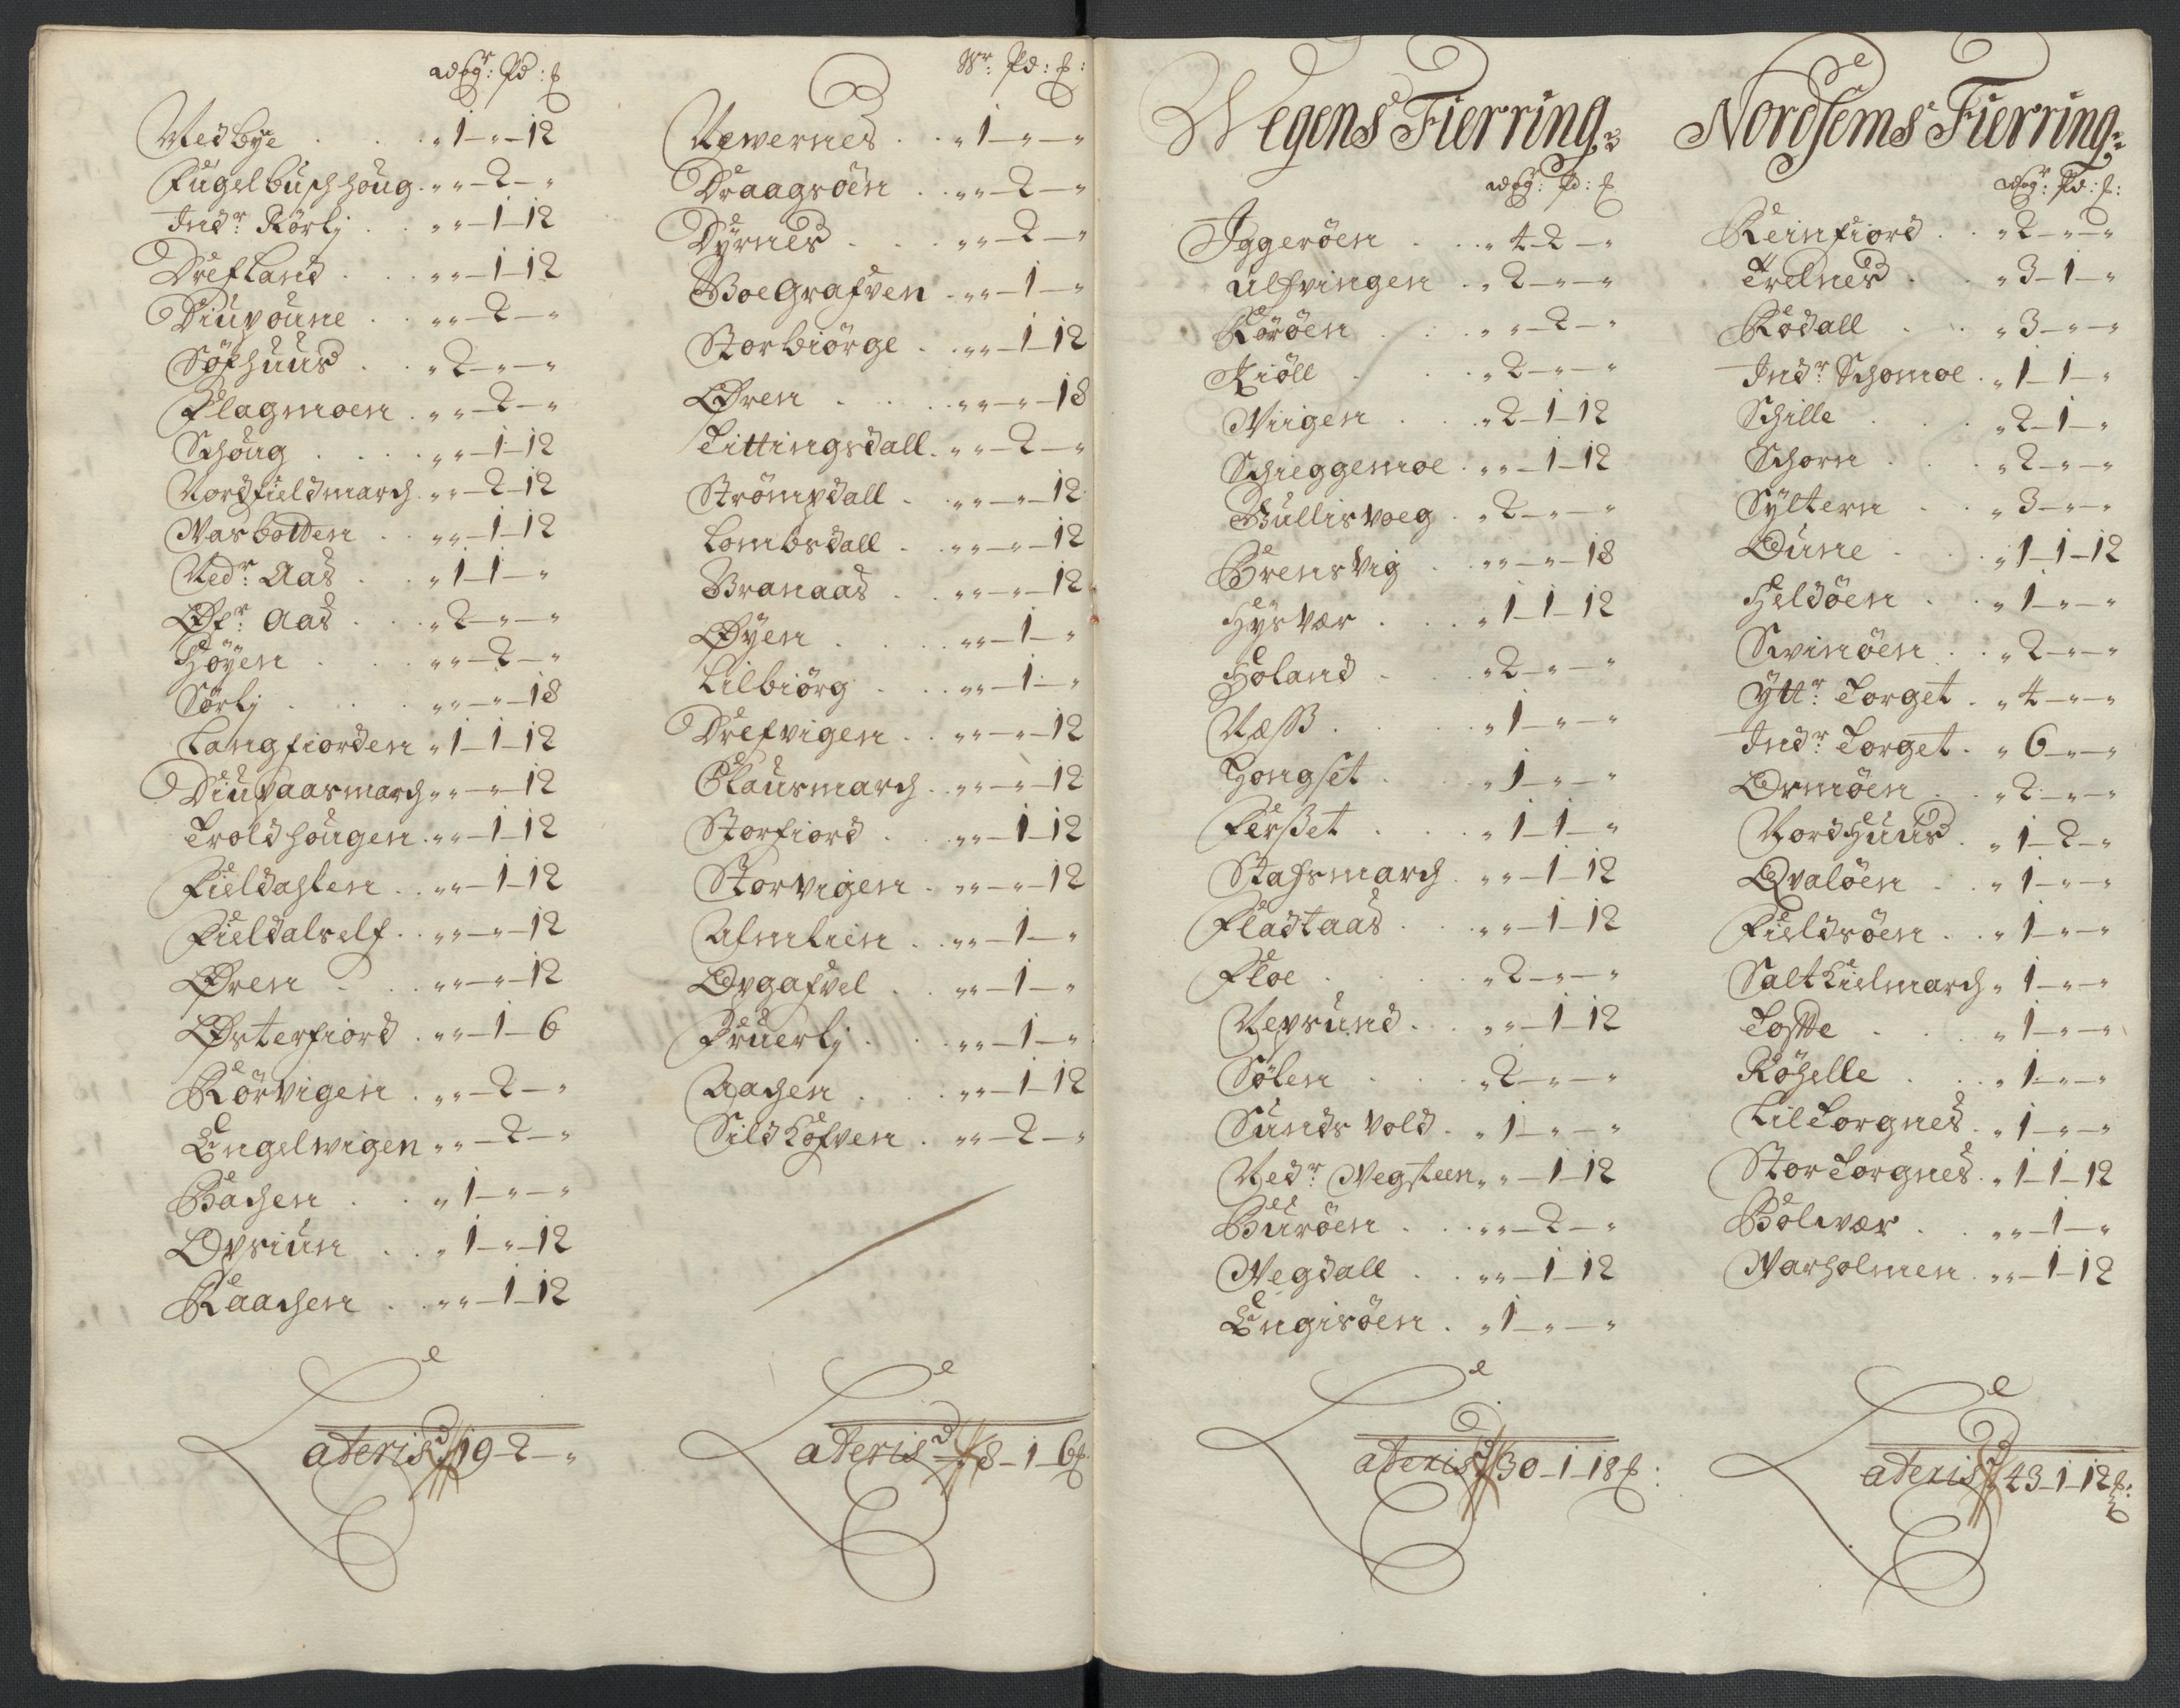 Wog: Pd: ƒ
Nedbye . . . „ 1 – „ – 12
Fugelbuschhoug . „ „ – 2 – „
Indr: Rörlj . . „ „ – 1 – 12
Drefland . . . „ „ – 1 – 12
Diupoune . . „ „ – 2 – „
Söfhuus . . „ 2 – „ – „
Flagmoen . „ „ – 2 – „
Schoug . . . „ „ – 1 – 12
Nordfieldmarch . „ „ – 2 – 12
Wasbotten . . „ „ – 1 – 12
Nedr: Aas . . „ 1 – 1 – „
Øfr: Aas . . „ 2 – „ – „
Höyen . . . „ „ – 2 – „
Sörlj . . . „ „ – „ – 18
Langfiorden „ 1 – 1 – 12
Diupaasmarch „ „ – „ – 12
Troldhougen . „ „ – 1 – 12
Fieldahlen . . „ „ – 1 – 12
Fieldalself . . „ „ – „ – 12
Øren . . . „ „ – „ – 12
Østerfiord . „ „ – 1 – 6
Rörvigen . „ „ – 2 – „
Engelwigen „ „ – 2 – „
Bachen . . „ 1 – „ – „
Opsiun . . „ 1 – „ – 12
Raachen . . „ „ – 1 – 12
Lateris 19 – 2 – „
Wr: Pd: ƒ:
Næwernes . . „ 1 – „ – „
Draagsöen . . „ „ – 2 – „
Dyrnes . . . „ „ – 2 – „
Boegrafven . „ „ – 1 – „
Storbiörge . . „ „ – 1 – 12
Øren . . . „ „ – „ – 18
Tittingsdall . „ „ – 2 – „
Strömpdall . . „ „ – „ – 12
Lombsdall . . „ „ – „ – 12
Branaas . . „ „ – „ – 12
Øyen . . . „ „ – 1 – „
Lilbiörg . . . „ „ – 1 – „
Drefvigen . . „ „ – „ – 12
Clausmarch . „ „ – „ – 12
Storfiord . . „ „ – 1 – 12
Storvigen . „ „ – „ – 12
Almlien . . „ „ – 1 – „
Opgafvel . . „ „ – 1 – „
Fruerlj . . . „ „ – 1 – „
Aachen . . . „ „ – 1 – 12
Sildhofven . „ „ – 2 – „
Lateris 8 – 1 – 6 ƒ
Wegens Fierring:
Wog: Pd: ƒ
Iggeröen . . . „ 4 – 2 – „
Ulfvingen . . „ 2 – „ – „
Roröen . . . „ „ – 2 – „
Kiöll . . . „ 2 – „ – „
Viigen . . . „ 2 – 1 – 12
Schieggemoe . „ „ – 1 – 12
Bullisvoeg . „ 2 – „ – „
Brensvig . „ „ – „ – 18
Hysvær . . . „ 1 – 1 – 12
Holand . . . „ 2 – „ – „
Næss . . . „ 1 – „ – „
Hongset . . . „ 1 – „ – „
Ferset . . . „ 1 – 1 – „
Stafsmarch . „ „ – 1 – 12
Fladtaas . . „ „ – 1 – 12
Floe . . . „ 2 – „ – „
Repsund . . „ „ – 1 – 12
Sölen . . . „ 2 – „ – „
Sundsvold . „ 1 – „ – „
Nedr: Vegsteen „ „ – 1 – 12
Buröen . . . „ „ – 2 – „
Vegdall . . „ „ – 1 – 12
Engisöen . „ 1 – „ – „
Lateris 30 – 1 – 18 ƒ:
Nordsems Fierring:
Wog: Pd: ƒ:
Reinfiord . . „ 2 – „ – „
Trelnes . . „ 3 – 1 – „
Rödall . . . „ 3 – „ – „
Indr: Schomoe . „ 1 – 1 – „
Schille . . . „ 2 – 1 – „
Schorn . . . „ 2 – „ – „
Syltern . . „ 3 – „ – „
Oune . . . „ 1 – 1 – 12
Heldöen . . „ 1 – „ – „
Svinöen . . „ 2 – „ – „
Yttr: Torget . „ 4 – „ – „
Indr: Torget . „ 6 – „ – „
Ormöen . . „ 2 – „ – „
Nordhuus . „ 1 – 2 – „
Qvalöen . . „ 1 – „ – „
Fieldsöen . . „ 1 – „ – „
Saltkielmarch „ 1 – „ – „
Tofte . . . „ 1 – „ – „
Röhelle . . . „ 1 – „ – „
LilTorgnes . „ 1 – „ – „
StorTorgnes . „ 1 – 1 – 12
Bolwær . . „ „ – 1 – „
Varholmen . „ „ – 1 – 12
Lateris 43 – 1 – 12 ƒ: